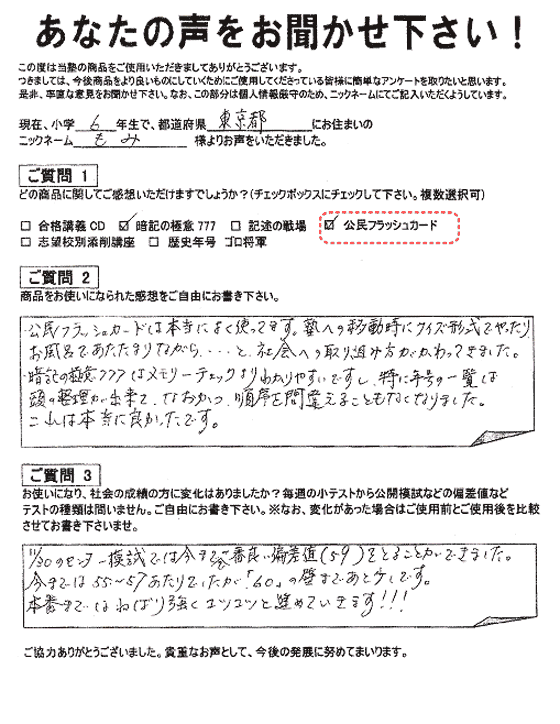 あなたの声をお聞かせ下さい！
この度は当塾の商品をご使用いただきましてありがとうございます。
つきましては、今後商品をより良いものにしていくためにご使用してくださっている皆様に簡単なアンケートを取りたいと思います。
是非、率直な意見をお聞かせ下さい。なお、この部分は個人情報厳守のため、ニックネームにてご記入いただくようしています。
現在、小学 6 年生で、都道府県 東京都 にお住まいの
ニックネーム もみ 様よりお声をいただきました。
ご質問 1
どの商品に関してご感想いただけますでしょうか？（チェックボックスにチェックして下さい。複数選択可）
□ 合格講義CD ☑ 暗記の極意 777 □ 記述の戦場 ☑ 公民フラッシュカード
□ 志望校別添削講座 □ 歴史年号 ゴロ将軍
ご質問 2
商品をお使いになられた感想をご自由にお書き下さい。
・公民フラッシュカードは本当によく使ってます。塾への移動時にクイズ形式でやったり
お風呂であたたまりながら、・・・と、社会への取り組み方がかわってきました。
・暗記の極意777はメモリーチェックよりわかりやすいですし、特に年号の一覧は
頭の整理が出来て、なおかつ、順序を間違えることもなくなりました。
これは本当に良かったです。
ご質問 3
お使いになり、社会の成績の方に変化はありましたか？毎週の小テストから公開模試などの偏差値など
テストの種類は問いません。ご自由にお書き下さい。※なお、変化があった場合はご使用前とご使用後を比較
させてお書き下さいませ。
11/30のセンター模試では今までで一番良い偏差値(59)をとることができました。
今までは55~57あたりでしたが「60」の壁まであと少しです。
本番まではねばり強くコツコツと進めていきます!!!
ご協力ありがとうございました。貴重なお声として、今後の発展に努めてまいります。